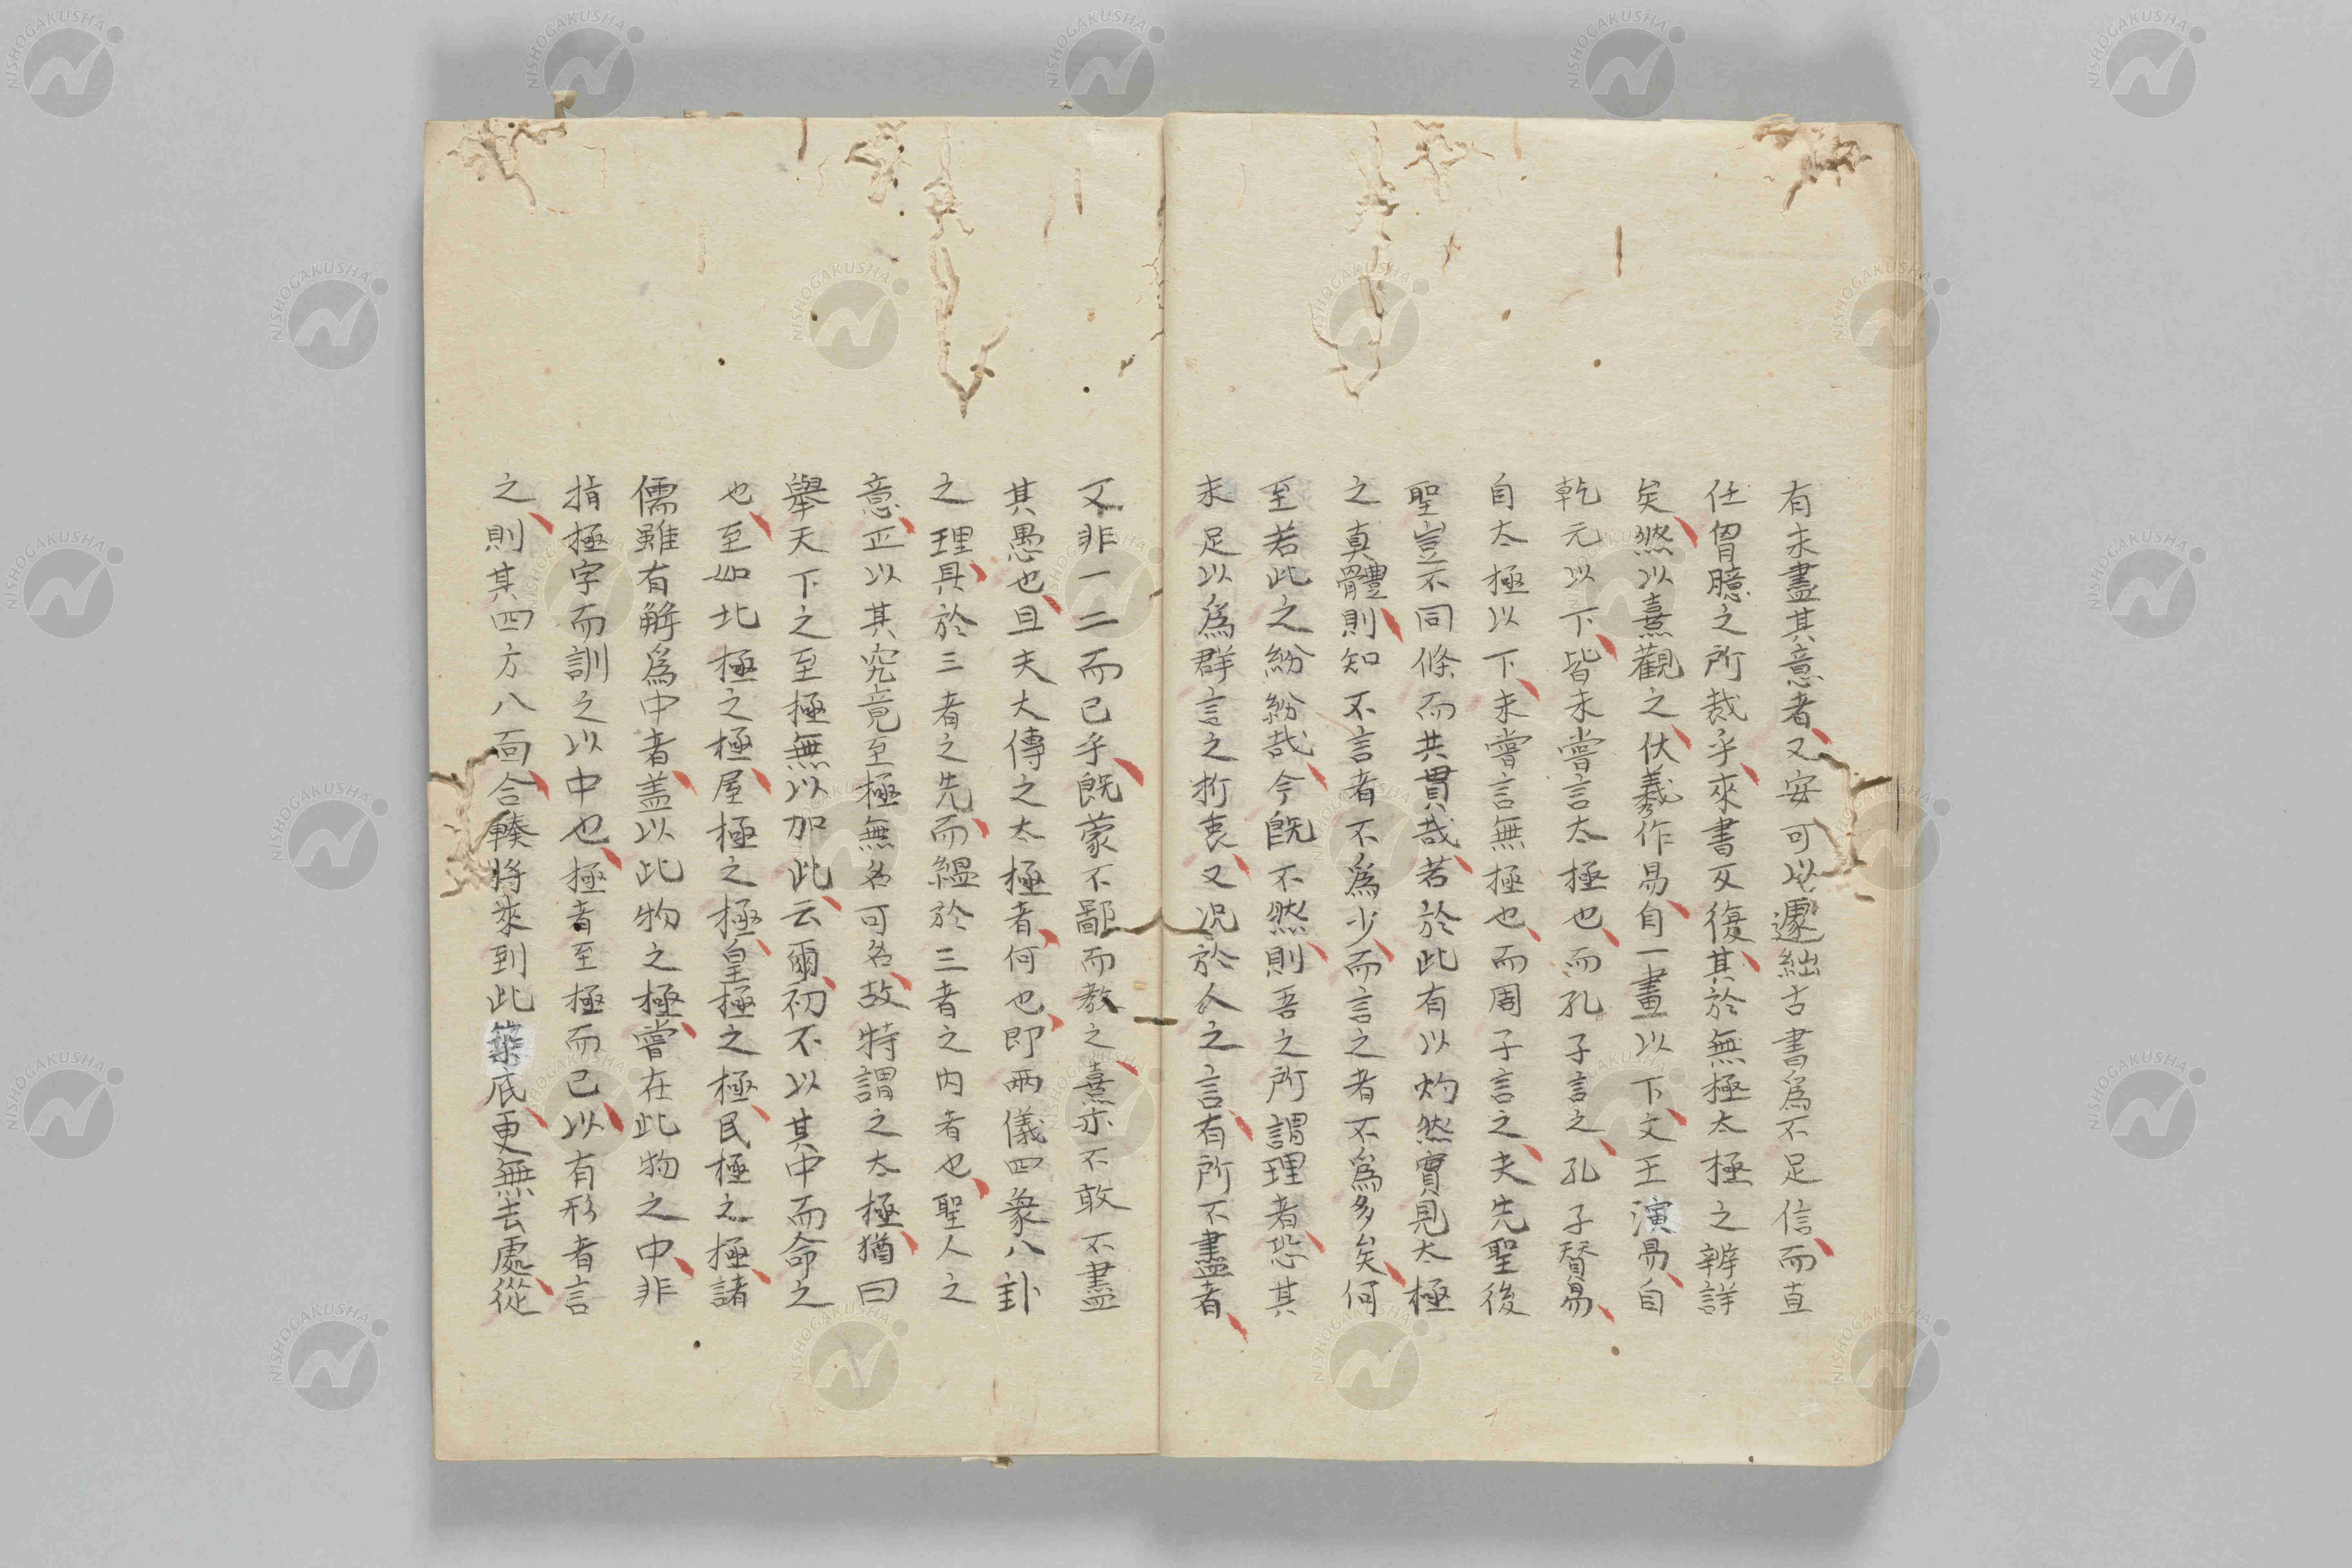 有未盡其意者又安可以遽絀古書爲不足信而直
任胷臆之所裁乎來書反復其於無極太極之辨詳
矣然以熹觀之伏羲作易自一畫以下文王演易自
乾元以下皆未嘗言太極也而孔子言之孔子賛易
自太極以下未嘗言無極也而周子言之夫先聖後
聖豈不同條而共貫哉若於此有以灼然實見太極
之真體則知不言者不爲少而言之者不爲多矣何
至若此之紛紛哉今既不然則吾之所謂理者恐其
未足以爲群言之折衷又况於人之言有所不盡者
又非一二而已乎既蒙不鄙而教之熹亦不敢不盡
其愚也且夫大傳之太極者何也即兩儀四象八卦
之理具於三者之先而縕於三者之内者也聖人之
意正以其究竟至極無名可名故特謂之太極猶曰
舉天下之至極無以加此云爾初不以其中而命之
也至如北極之極屋極之極皇極之極民極之極諸
儒雖有解爲中者盖以此物之極嘗在此物之中非
指極字而訓之以中也極者至極而已以有形者言
之則其四方八面合輳將來到此築底更無去處從
NISHOGAKUSHA